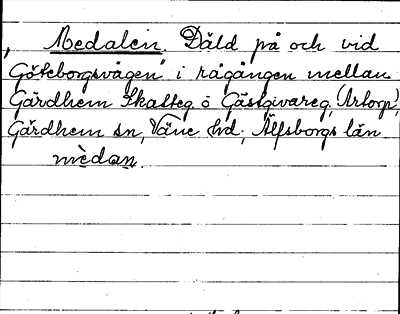 Medalen. Däld på och vid
Göteborgsvägen i rågången mellan
Gärdhem Skatteg. o Gästgivareg. (Artorp),
Gärdhem sn, Väne hd, Älfsborgs län
mèdan.